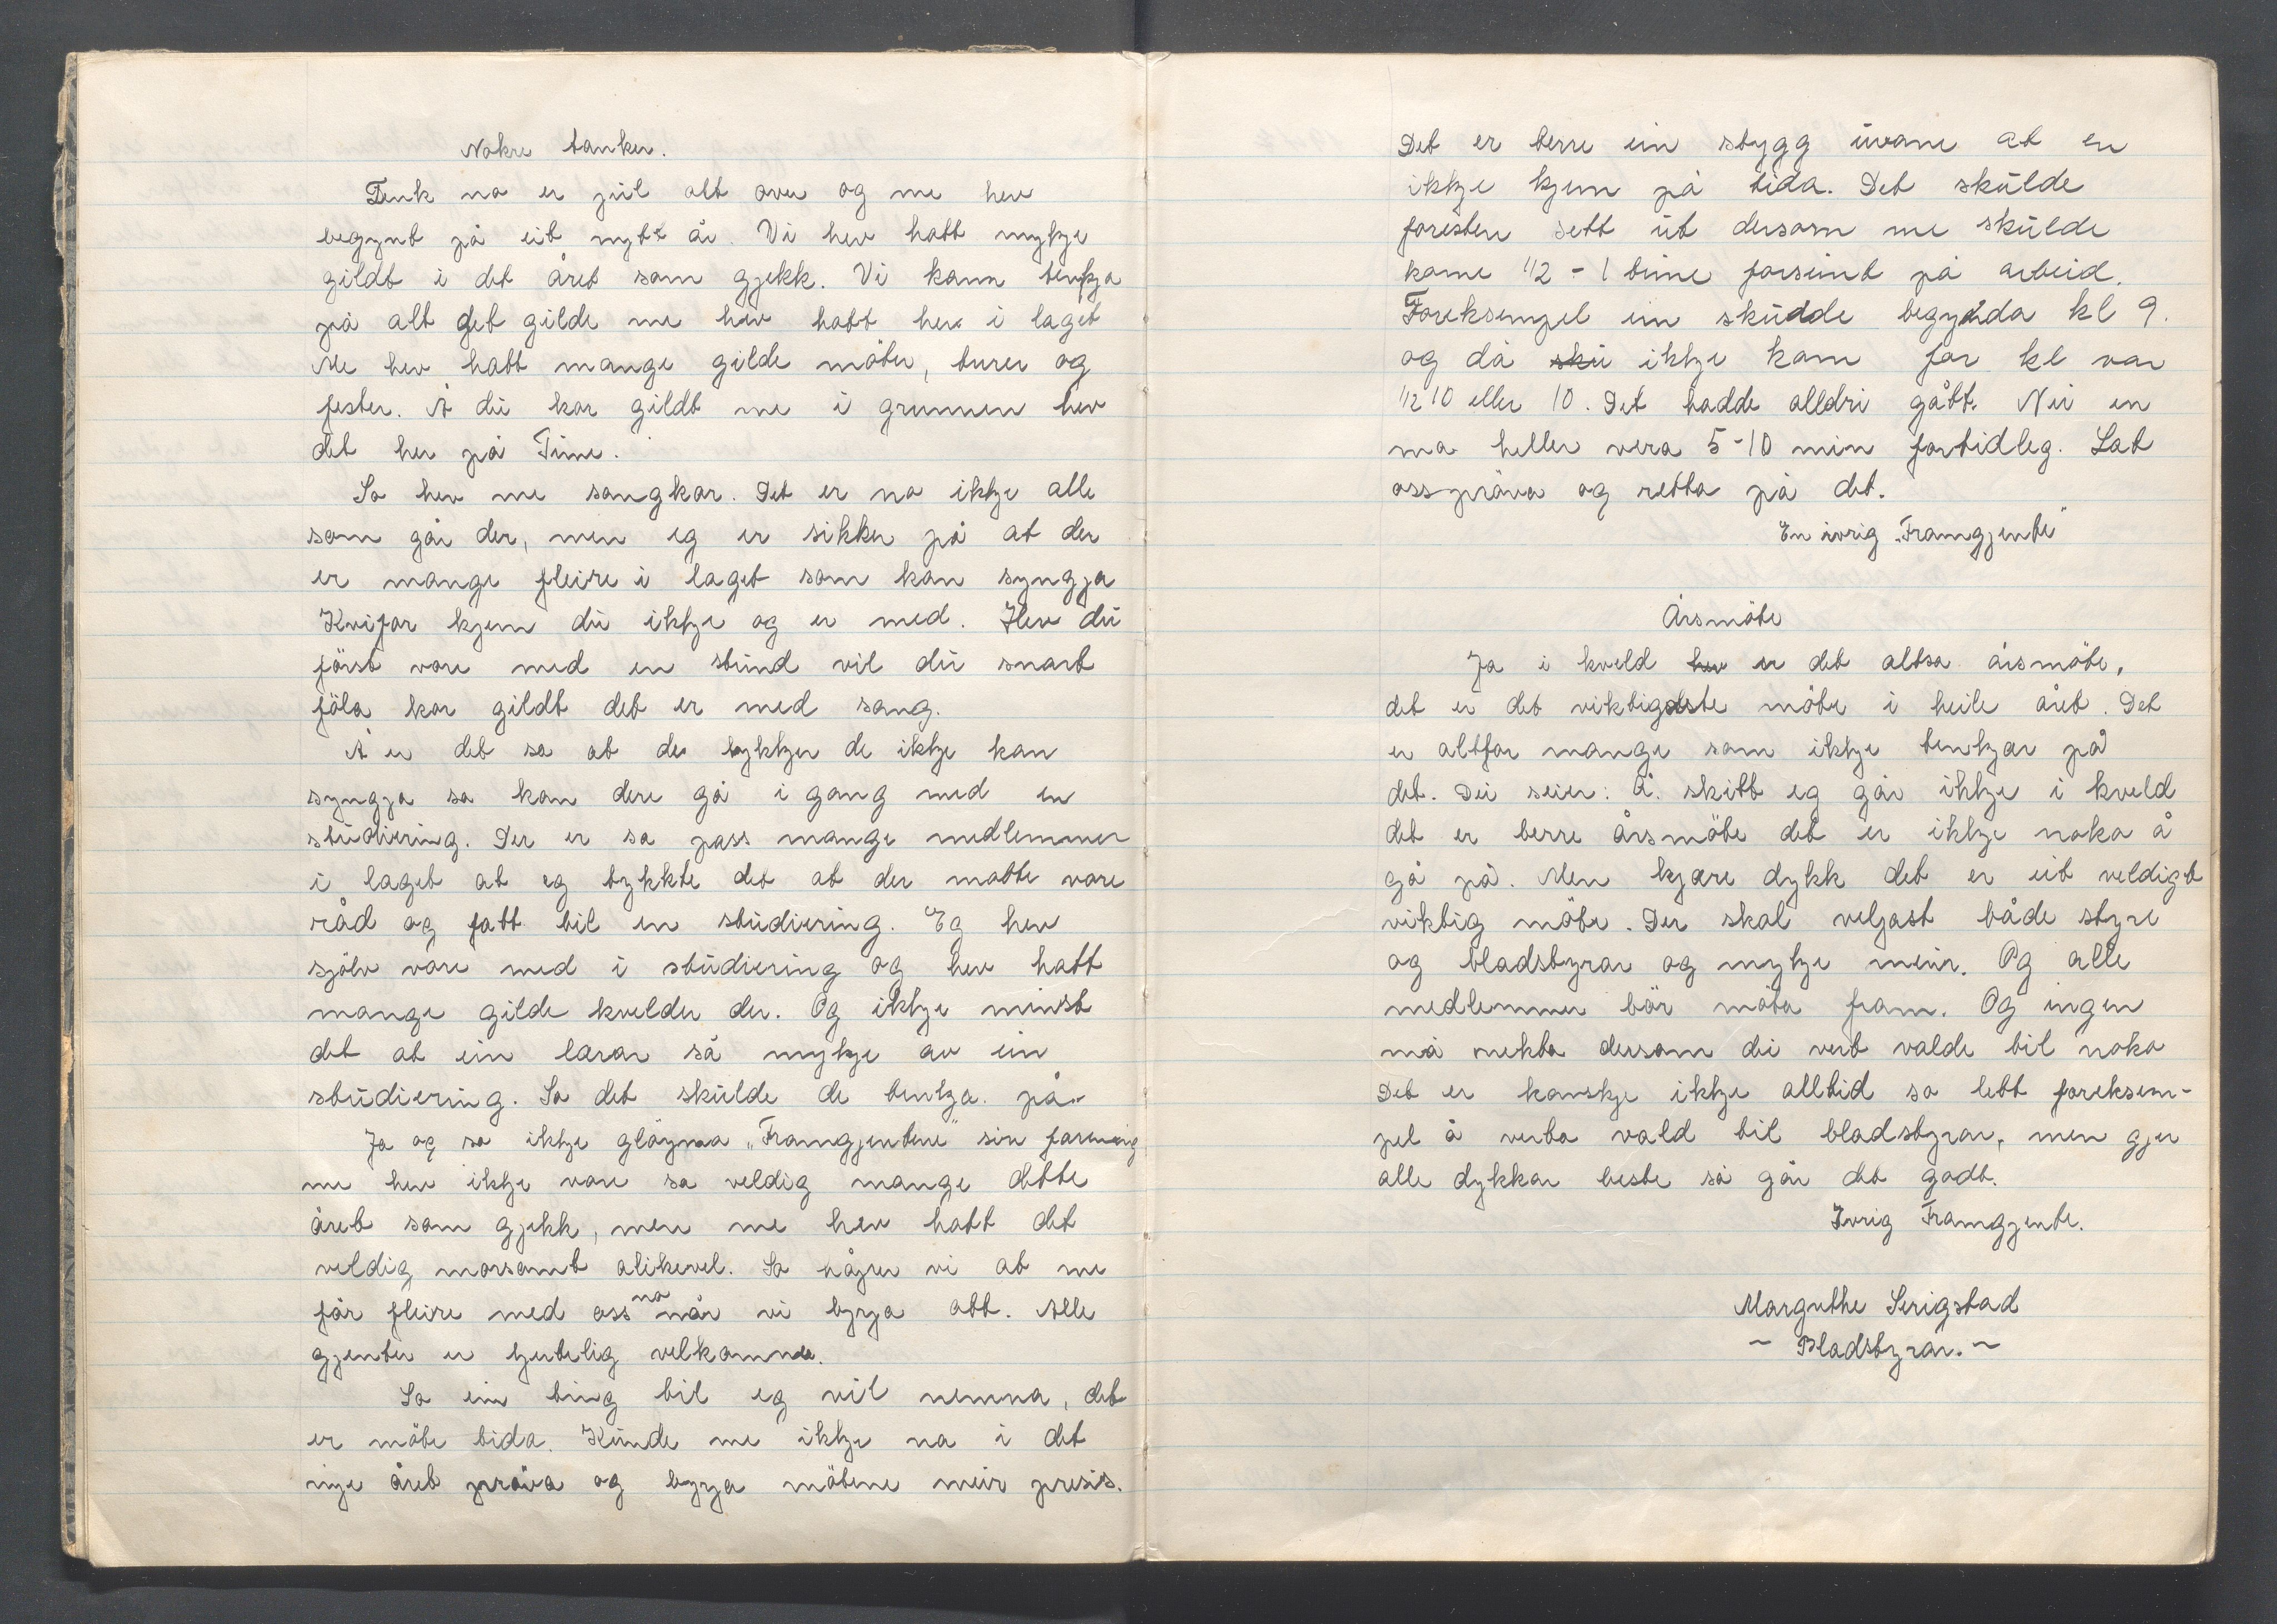 Nokre tanker.
Tenk no er jul alt over og me hev
begynt på eit nytt år. Vi hev hatt mykje
gildt i det året som gjekk. Vi kann tenkja
på alt det gilde me hev hatt her i laget
Me hev hatt mange gilde möter, turer og
fester. Å du kor gildt me i grunnen hev
det her på Time.
So hev me songkor. Det er no ikkje alle
som går der, men eg er sikker på at der
er mange fleire i laget som kan syngja
Kvifor kjem du ikkje og er med. Hev du
först vore med en stund vil du snart
föla kor gildt det er med song.
Å er det so at de tykkjer de ikkje kan
syngja so kan dere gå i gang med en
studiering. Der er so pass mange medlemmer
i laget at eg tykkte det at der måtte vore
råd og fått til en studiering. Eg hev
sjölv vore med i studiering og hev hatt
mange gilde kvelder der. Og ikkje minst
det at ein lærar så mykje av ein
studiering. So det skulde de tenkja på.
Ja og so ikkje glöyma „Framgjentene" sin foreining
me hev ikkje vore so veldig mange dette
året som gjekk, men me hev hatt det
veldig morsomt alikevel. So håper vi at me
får fleire med oss no når vi byrja att. Alle
gjenter er hjertelig velkomne.
So ein ting til eg vil nemna, det
er möte tida. Kunde me ikkje no i det
nye året pröva og byrja mötene meir presis.
Det er berre ein stygg uvane at en
ikkje kjem på tida. Det skulde
foresten sett ut dersom me skulde
kome 1/2 - 1 time forseint på arbeid.
Foreksempel ein skulde begynda kl 9.
og då sku ikkje kom för kl var
1/2 10 eller 10. Det hadde alldri gått. Nei en
må heller vera 5-10 min fortidleg. Lat
oss pröva og retta på det.
En ivrig „Framgjente"
Årsmöte
Ja i kveld hev er det altso årsmöte,
det er det viktigaste möte i heile året. Det
er altfor mange som ikkje tenkjer på
det. Dei seier: Å. skitt eg går ikkje i kveld
det er berre årsmöte det er ikkje noko å
gå på. Men kjære dykk det er eit veldigt
viktig möte. Der skal veljast både styre
og bladstyrar og mykje meir. Og alle
medlemmer bör möta fram. Og ingen
må nekta dersom dei vert valde til noko
Det er kanskje ikkje alltid so lett foreksem-
pel å verta vald til bladstyrar, men gjer
alle dykkar beste så går det godt.
Ivrig Framgjente.
Margrethe Serigstad
~ Bladstyrar. ~